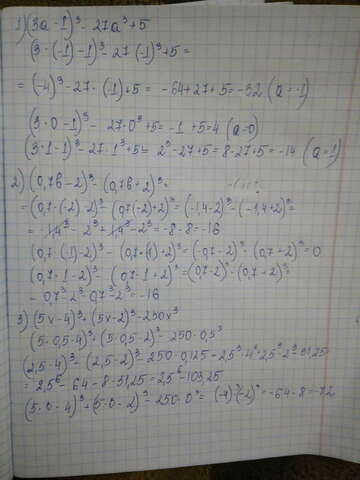 1) (3a - 1)³ - 27a³ + 5
(3 · (-1) - 1)³ - 27 · (-1)³ + 5 =
= (-4)³ - 27 · (-1) + 5 = -64 + 27 + 5 = -32 (a = -1)
(3 · 0 - 1)³ - 27 · 0³ + 5 = -1 + 5 = 4 (a = 0)
(3 · 1 - 1)³ - 27 · 1³ + 5 = 2³ - 27 + 5 = 8 - 27 + 5 = -14 (a = 1)
2) (0,7b - 2)³ - (0,7b + 2)³ =
= (0,7 · (-2) - 2)³ - (0,7 · (-2) + 2)³ = (-1,4 - 2)³ - (-1,4 + 2)³ =
= - 1,4³ - 2³ + 1,4³ - 2³ = -8 - 8 = -16
(0,7 · (-1) - 2)³ - (0,7 · (-1) + 2)³ = (-0,7 - 2)³ - (0,7 + 2)³ = 0
(0,7 · 1 - 2)³ - (0,7 · 1 + 2)³ = (0,7 - 2)³ - (0,7 + 2)³ =
= 0,7³ - 2³ - 0,7³ - 2³ = -16
3) (5x - 4)³ + (5x - 2)³ - 250x³
(5 · 0,5 - 4)³ + (5 · 0,5 - 2)³ - 250 · 0,5³
(2,5 - 4)³ + (2,5 - 2)³ - 250 · 0,125 = 2,5³ - 4³ + 2,5³ - 2³ - 31,25
= 2,5⁶ - 64 - 8 - 31,25 = 2,5⁶ - 103,25
(5 · 0 - 4)³ + (5 · 0 - 2)³ - 250 · 0³ = (-4)³ + (-2)³ = -64 - 8 = -72